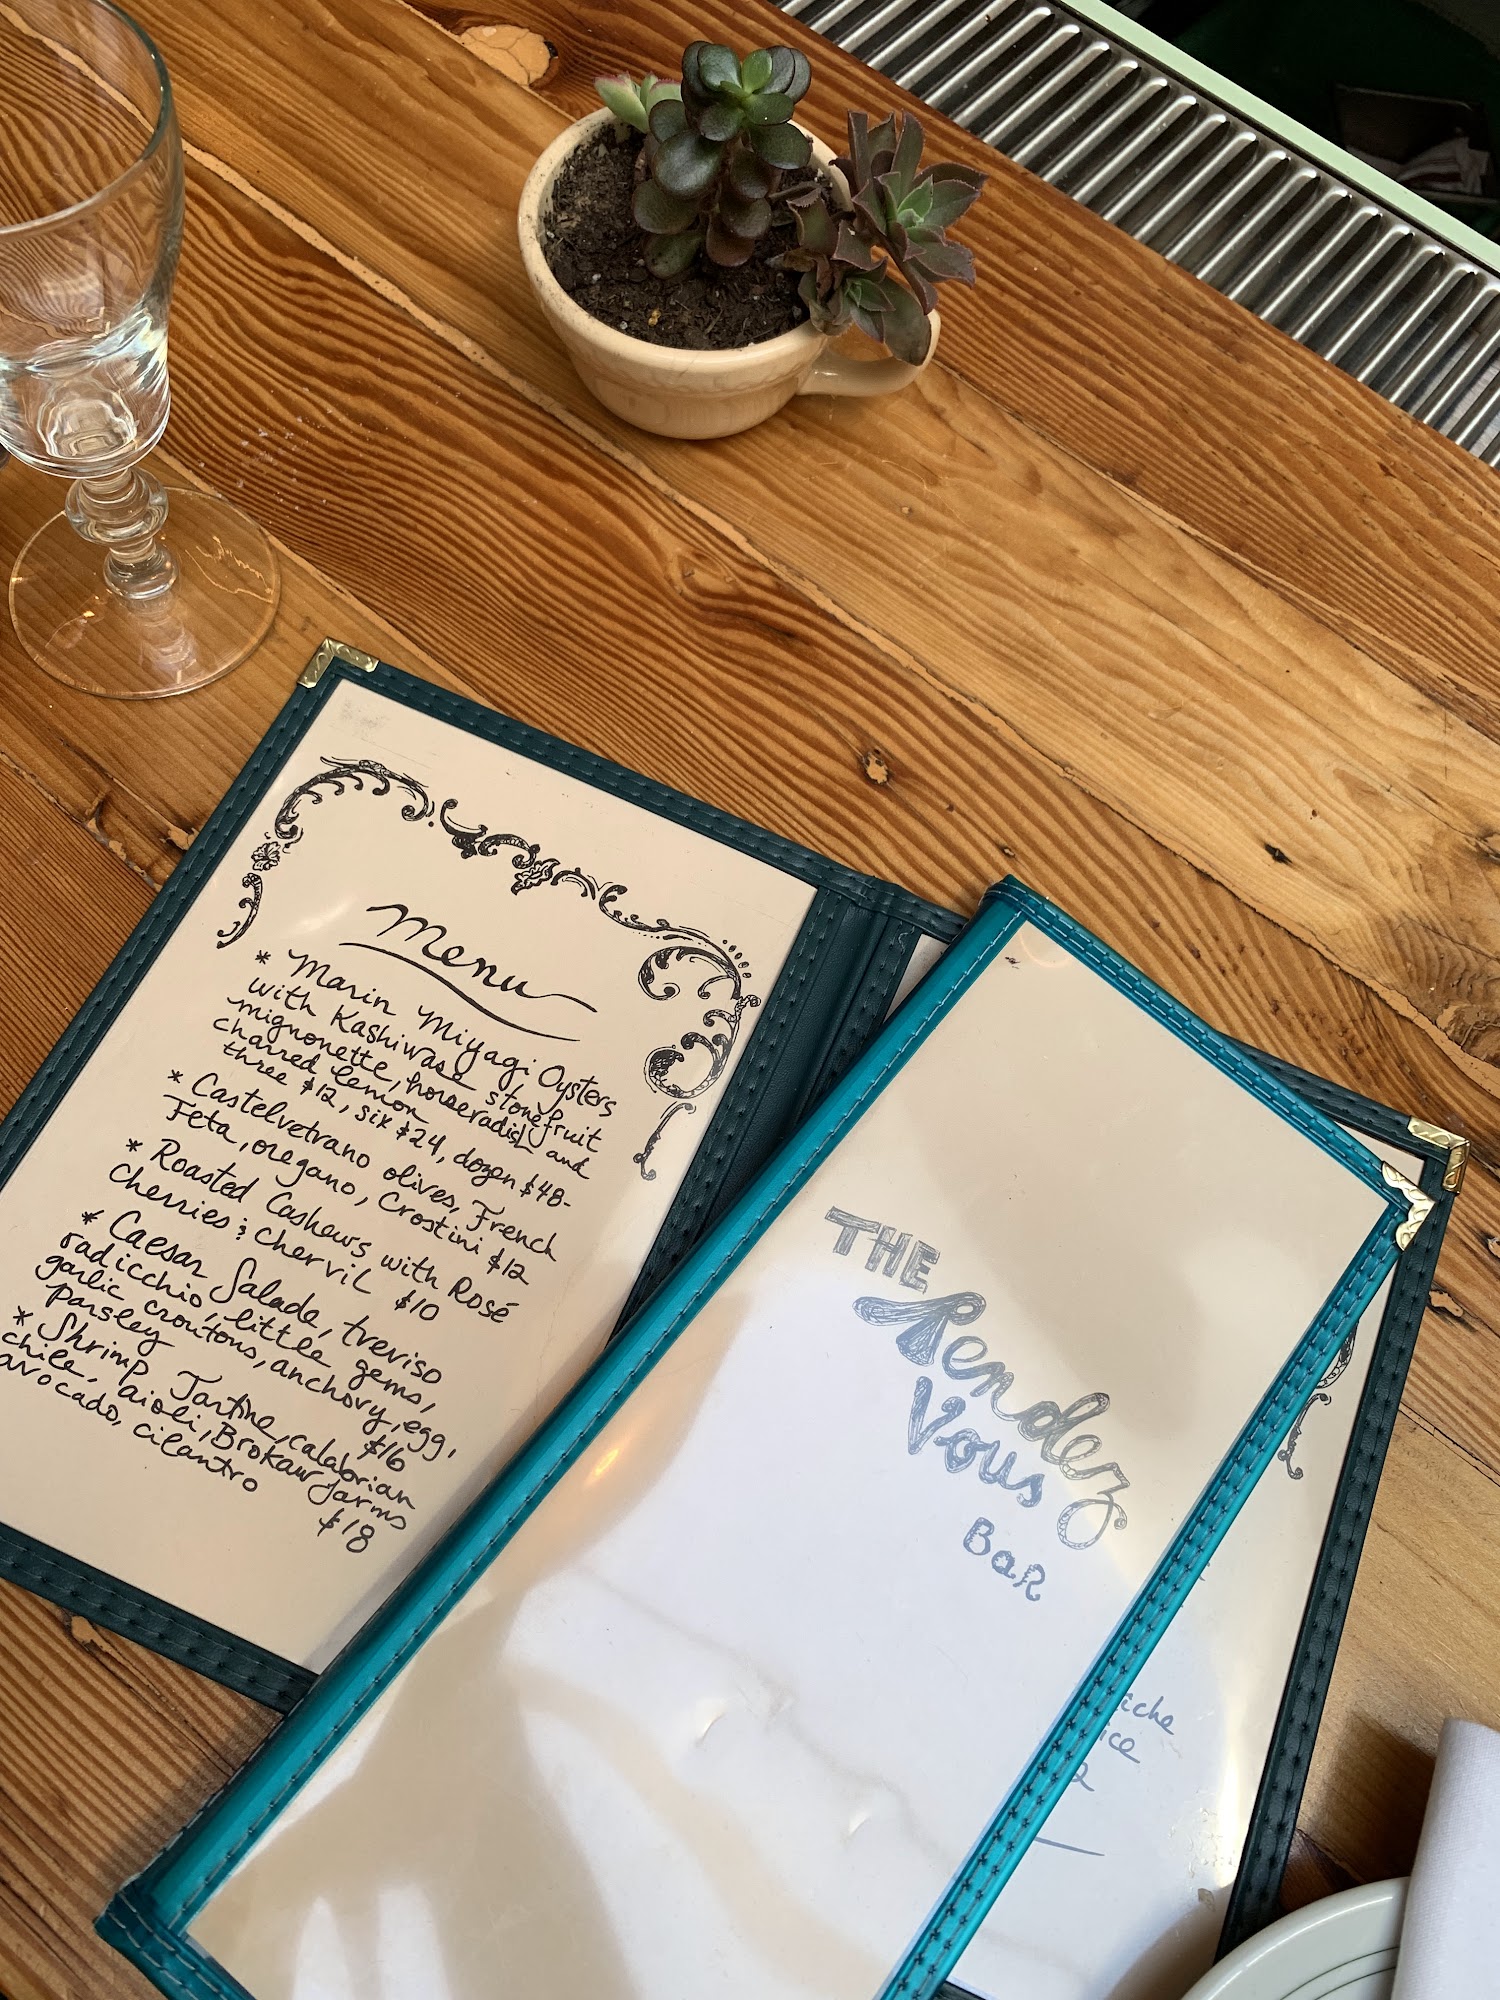 Menu
* Marin Miyagi Oysters
with Kashiwase stonefruit
mignonette, horseradish and
charred lemon
three $12, six $24, dozen $48-
* Castelvetrano olives, French
Feta, oregano, Crostini $12
* Roasted Cashews with Rosé
Cherries & Chervil $10
* Caesar Salade, treviso
radicchio, little gems,
garlic croutons, anchovy, egg,
parsley $16
* Shrimp Tartine, calabrian
chile, aioli, Brokaw farms
avocado, cilantro
$18
THE
Rendez
Vous
BAR